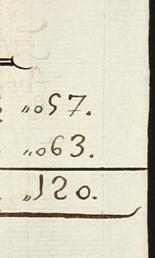 "057.
"063.
"120.